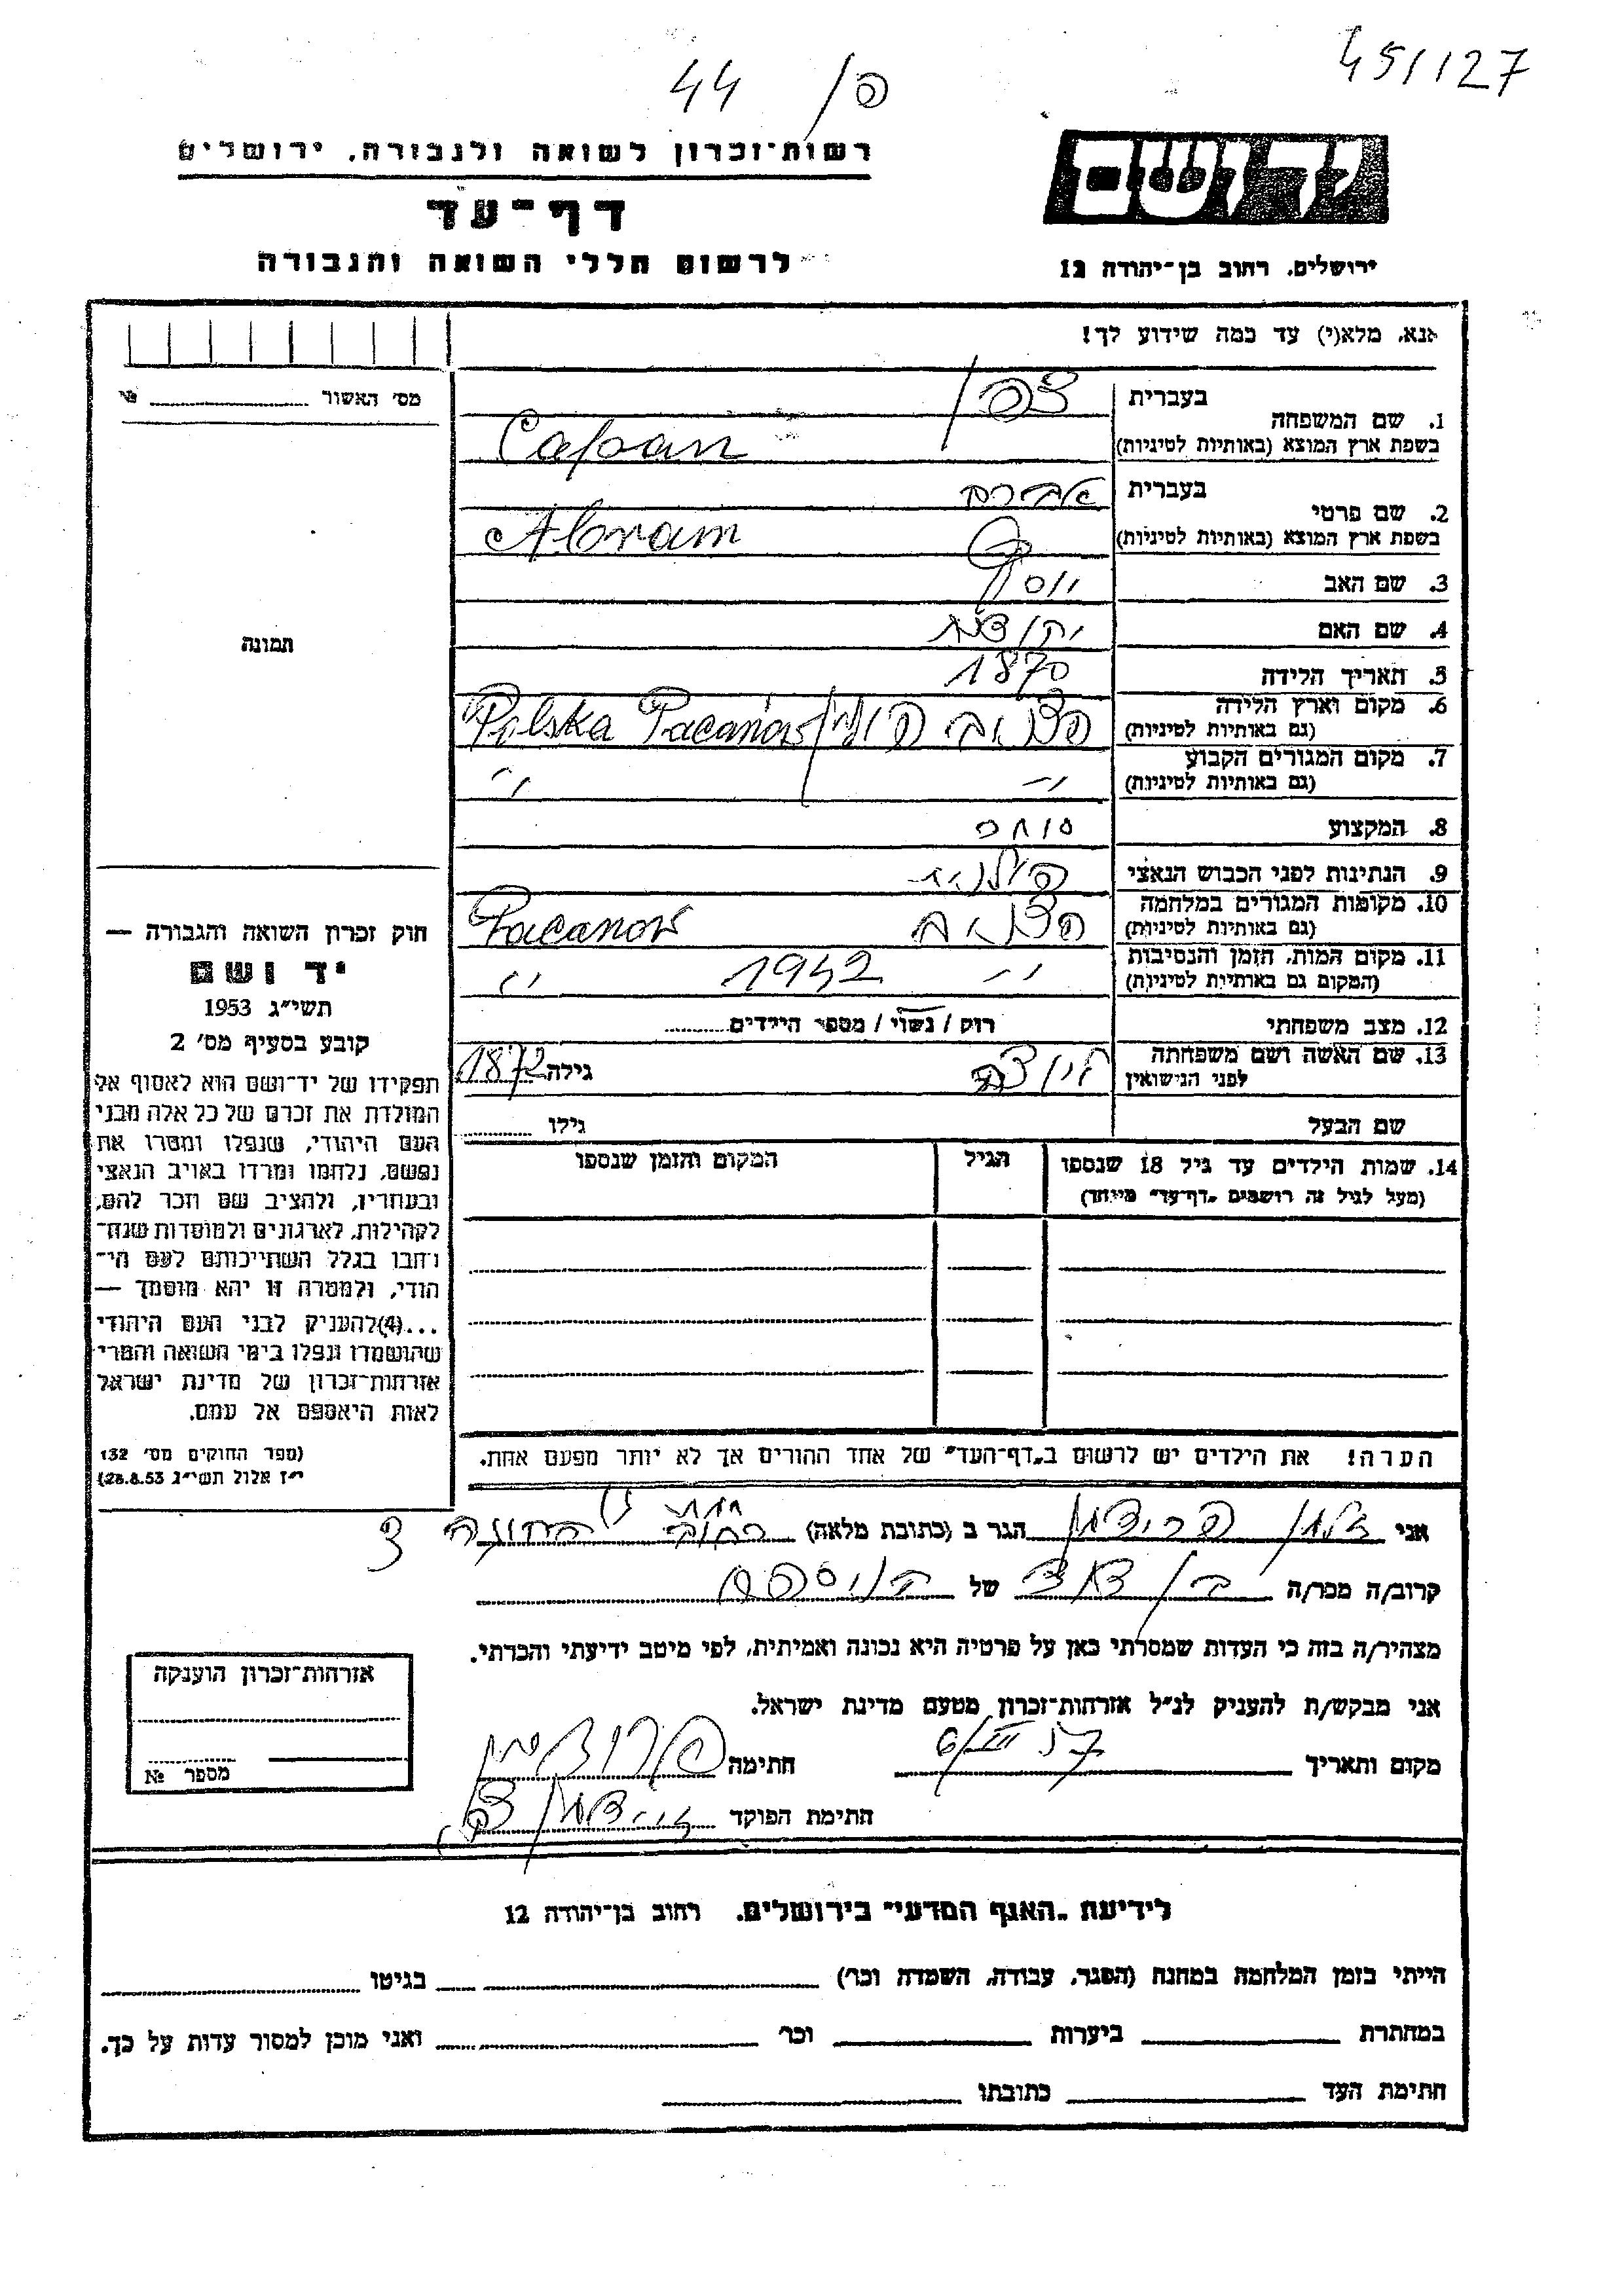 45/127
44 פ/
רשות־זכרון לשואה ולגבורה, ירושלים
דף־עד
לרשום חללי השואה והגבורה
יד ושם
ירושלים, רחוב בן־יהודה 12
אנא, מלא(י) עד כמה שידוע לך!
מס׳ האשור № 
1. שם המשפחה בעברית צפן
בשפת ארץ המוצא (באותיות לטיניות) Capan
2. שם פרטי בעברית אברם
בשפת ארץ המוצא (באותיות לטיניות) Abram
3. שם האב יוסף
4. שם האם
5. תאריך הלידה 1870
6. מקום וארץ הלידה (גם באותיות לטיניות) פצנוב פולין Polska Pacanów
7. מקום המגורים הקבוע (גם באותיות לטיניות) -״- -״-
8. המקצוע סוחר
9. הנתינות לפני הכבוש הנאצי פולנית
10. מקומות המגורים במלחמה (גם באותיות לטיניות) פצנוב Pacanow
11. מקום המות, הזמן והנסיבות (המקום גם באותיות לטיניות) -״- 1942 -״-
12. מצב משפחתי רוק / נשוי / מספר הילדים
13. שם האשה ושם משפחתה לפני הנישואין גילה 1872
שם הבעל גילו
14. שמות הילדים עד גיל 18 שנספו (מעל לגיל זה רושמים „דף־עד״ מיוחד)
הגיל
המקום והזמן שנספו
הערה! את הילדים יש לרשום ב„דף־העד״ של אחד ההורים אך לא יותר מפעם אחת.
תמונה
חוק זכרון השואה והגבורה —
יד ושם
תשי״ג 1953
קובע בסעיף מס׳ 2
תפקידו של יד־ושם הוא לאסוף אל
המולדת את זכרם של כל אלה מבני
העם היהודי, שנפלו ומסרו את
נפשם, נלחמו ומרדו באויב הנאצי
ובעוזריו, ולהציב שם וזכר להם,
לקהילות, לארגונים ולמוסדות שנח־
רבו בגלל השתייכותם לעם הי־
הודי, ולמטרה זו יהא מוסמך —
...(4)להעניק לבני העם היהודי
שהושמדו ונפלו בימי השואה והמרי
אזרחות־זכרון של מדינת ישראל
לאות היאספם אל עמם.
(ספר החוקים מס׳ 132
י״ז אלול תשי״ג 28.8.53)
אני זלמן פרידמן הגר ב (כתובת מלאה) רחוב
קרוב/ה מכר/ה בן דוד של הניספה
מצהיר/ה בזה כי העדות שמסרתי כאן על פרטיה היא נכונה ואמיתית, לפי מיטב ידיעתי והכרתי.
אני מבקש/ת להעניק לנ״ל אזרחות־זכרון מטעם מדינת ישראל.
מקום ותאריך 6/III 57 חתימה פרידמן
חתימת הפוקד
אזרחות־זכרון הוענקה
מספר №
לידיעת „האגף המדעי״ בירושלים, רחוב בן־יהודה 12
הייתי בזמן המלחמה במחנה (הסגר, עבודה, השמדה וכו׳) בגיטו
במחתרת ביערות וכו׳ ואני מוכן למסור עדות על כך.
חתימת העד כתובתו